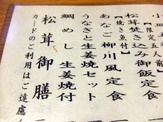 松茸炊き込み御飯定食
【焼き魚付】
あなご柳川風定食
うなぎと生姜焼セット
鯛めし 生姜焼付
松茸御膳
カードのご利用はご遠慮